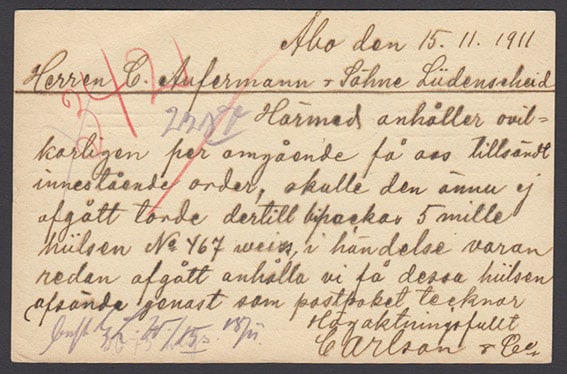 Åbo den 15.11.1911
Herren C. Aufermann & Söhne Lüdenscheid
342
Härmed anhåller ovil=
korligen per omgående få oss tillsändt
inneståënde order, skulle den ännu ej
afgått torde dertill bipackas 5 mille
hülsen No 467 weiss, i händelse varan
redan afgått anhålla vi få dessa hülsen
afsände genast som postpaket tecknar
Högaktningsfullt
Carlson & Co.